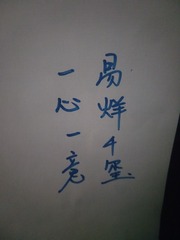 易烊4玺
一心一意